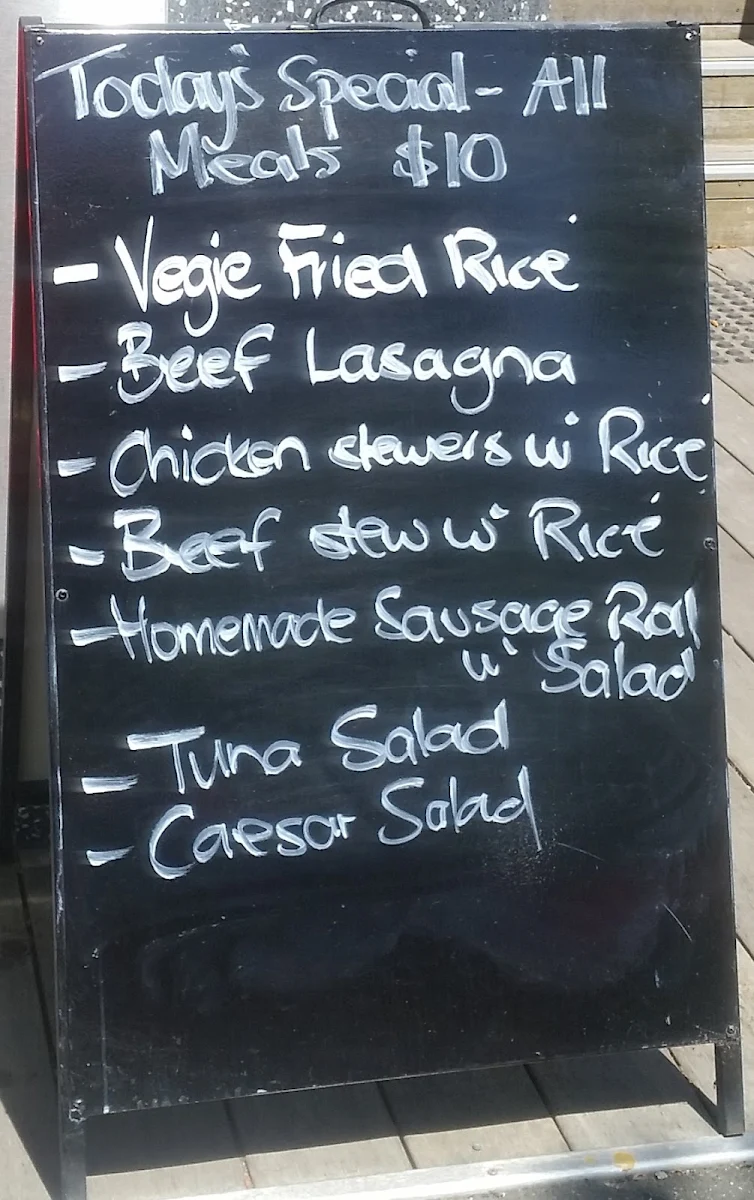 Today's Special - All
Meals $10
- Vegie Fried Rice
- Beef Lasagna
- Chicken skewers w' Rice
- Beef stew w' Rice
- Homemade Sausage Roll
w' Salad
- Tuna Salad
- Caesar Salad